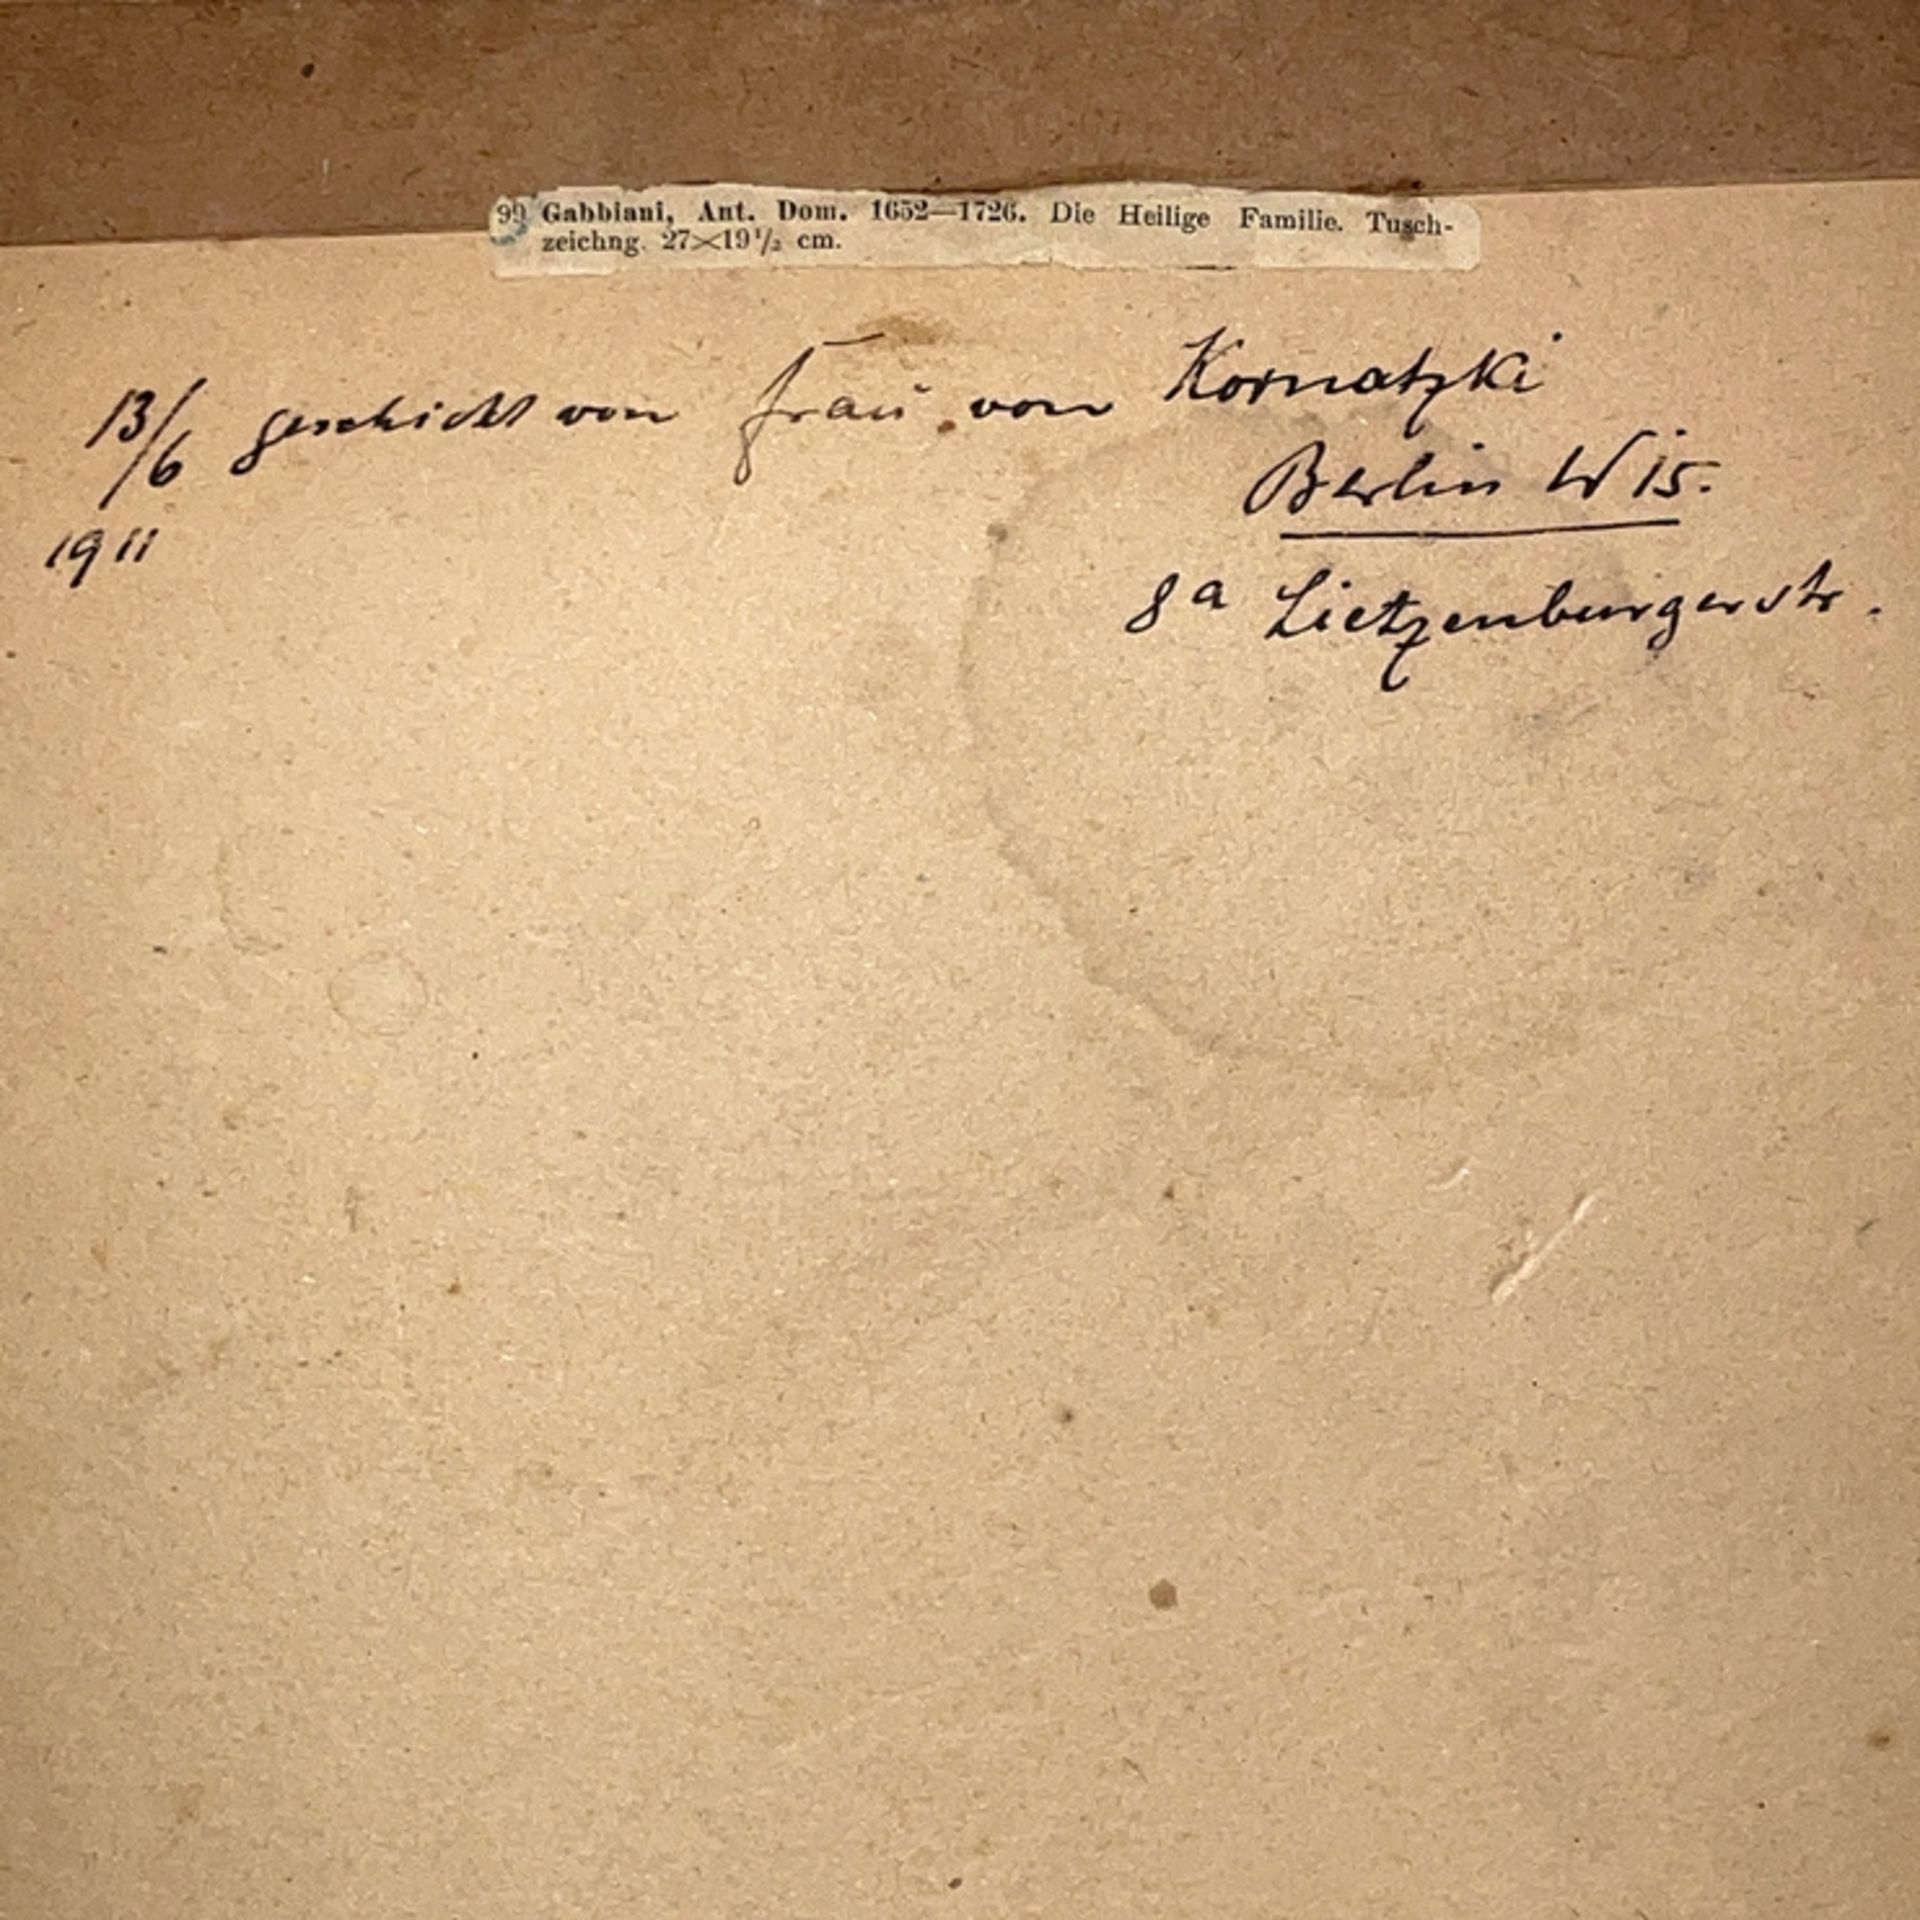 99 Gabbiani, Ant. Dom. 1652—1726. Die Heilige Familie. Tusch-
zeichng. 27×19 1/2 cm.
13/6 geschickt von Frau von Kornatzki
1911
Berlin W 15.
8a Lietzenburgerstr.